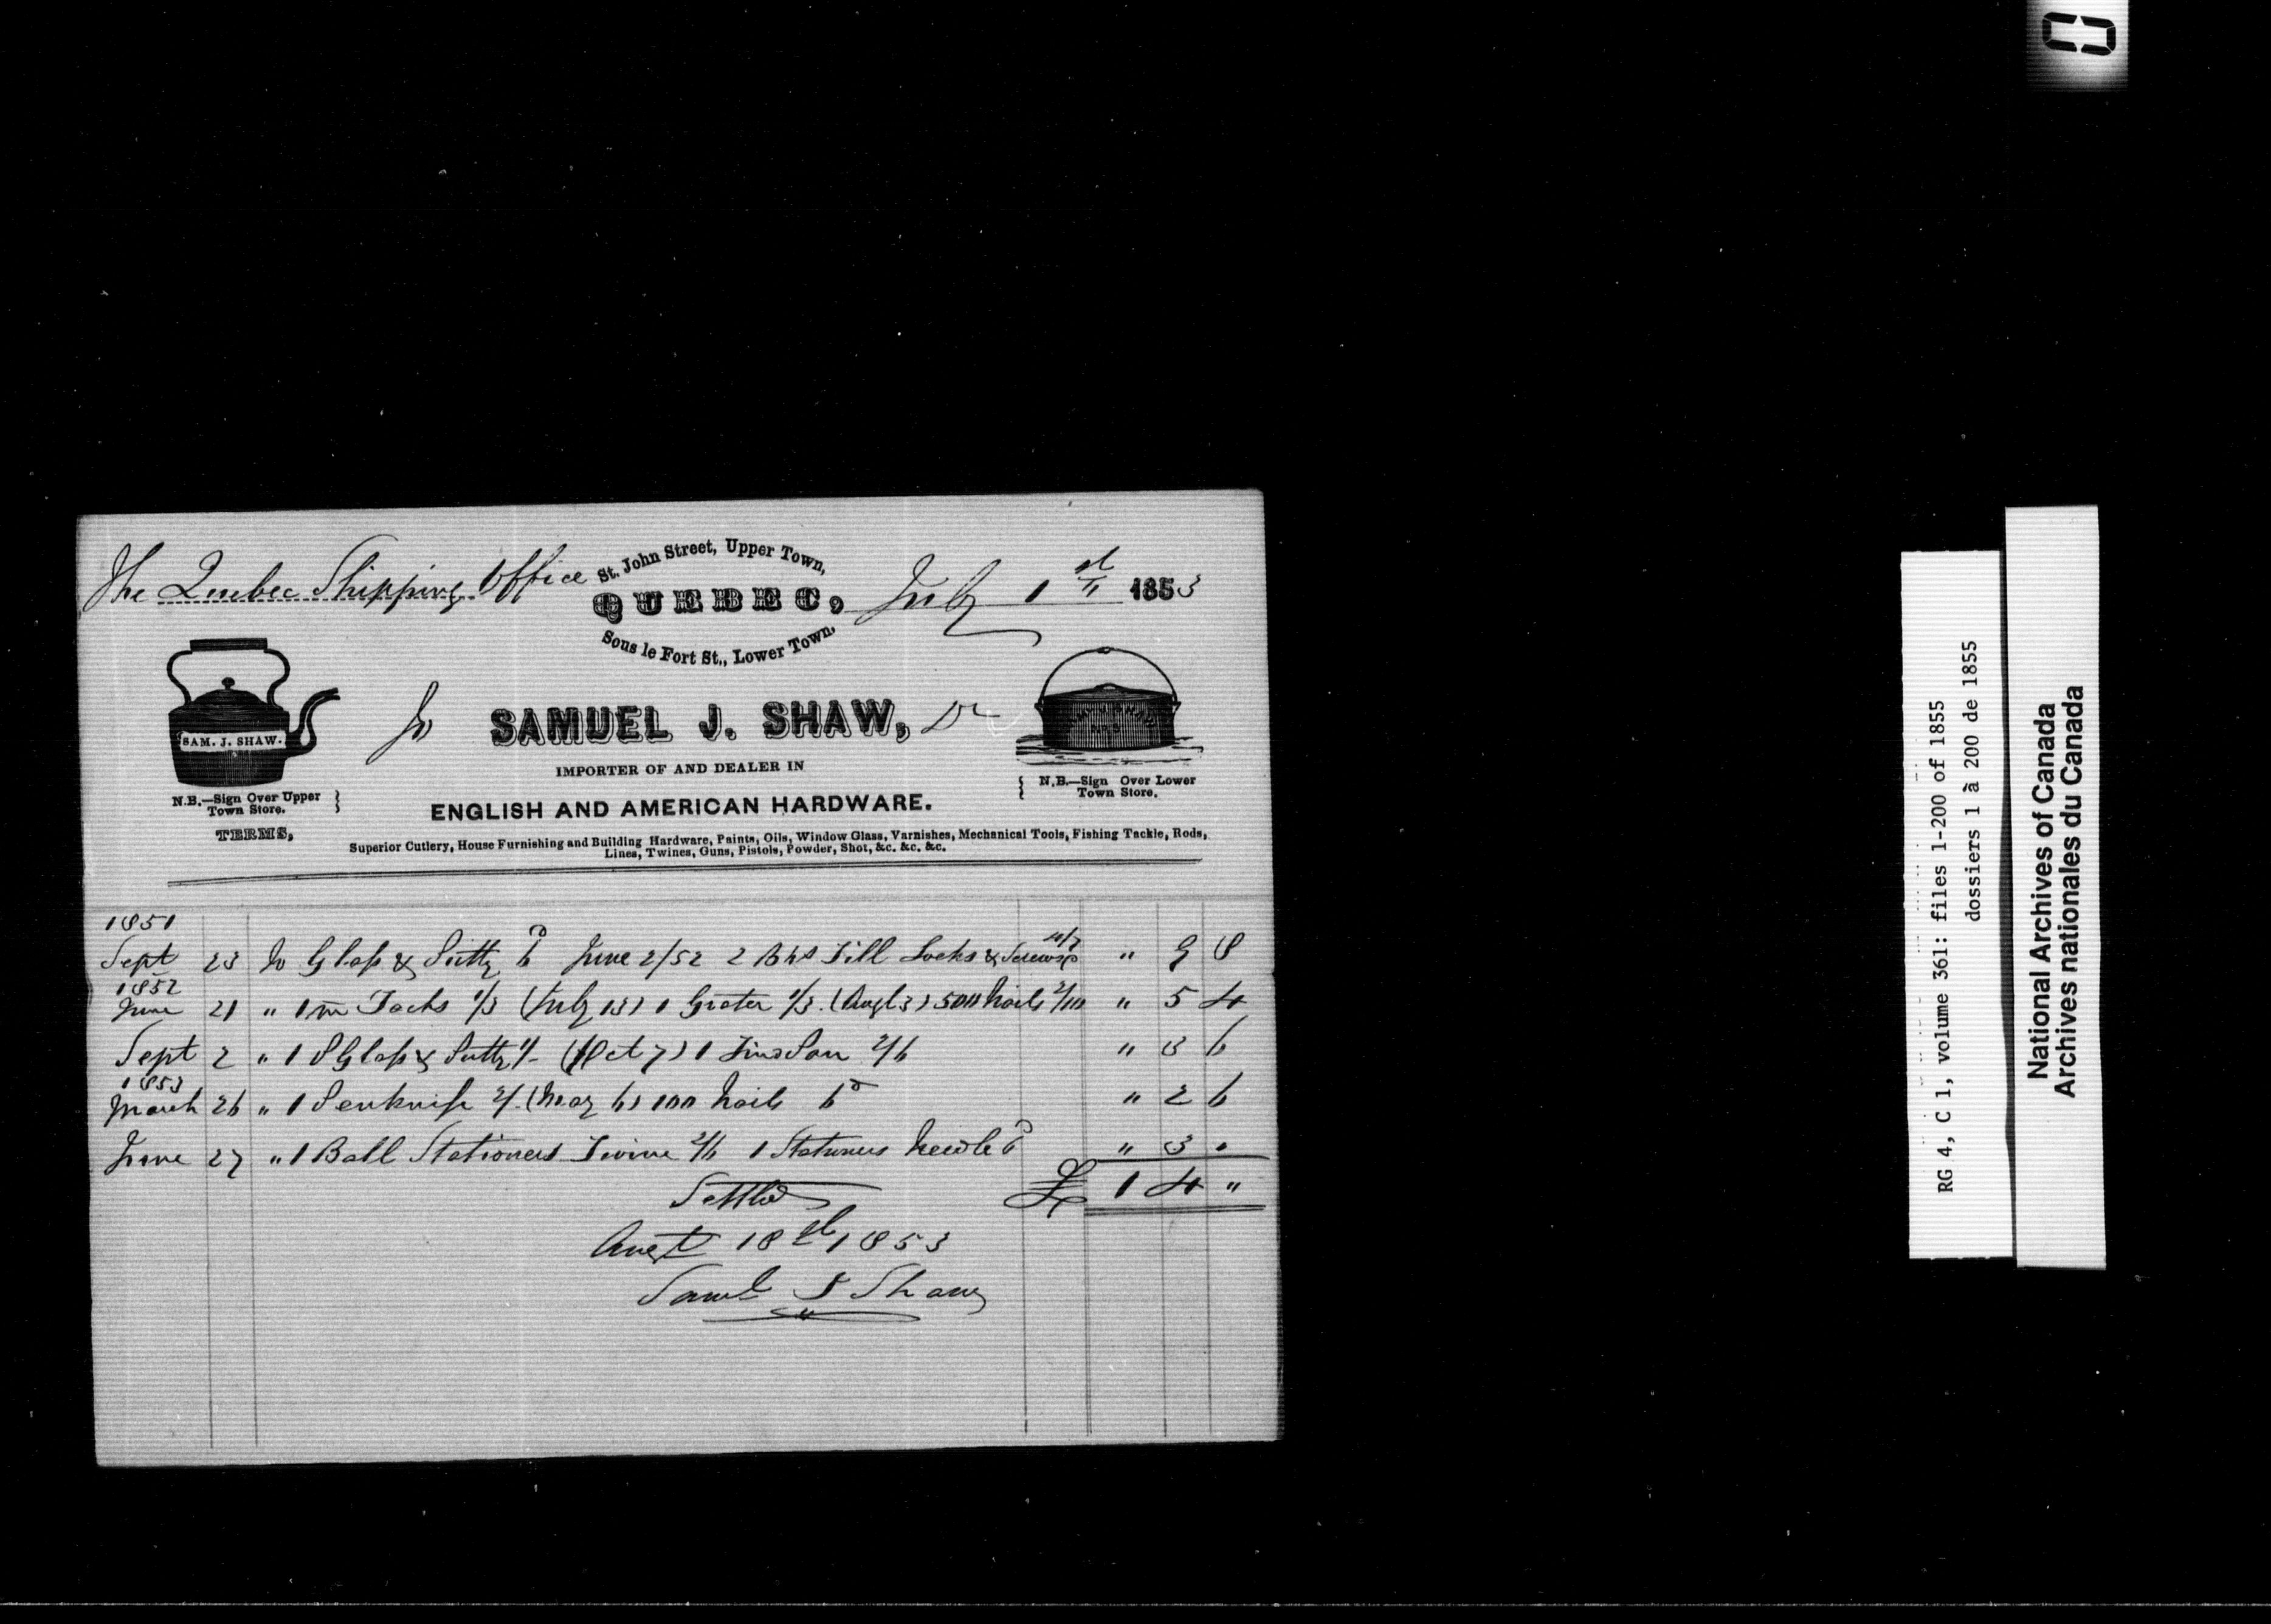 The Quebec Shipping Office
St. John Street, Upper Town,
QUEBEC, July 1st 1853
Sous le Fort St., Lower Town,
SAM. J. SHAW.
N.B.—Sign Over Upper
Town Store.
TERMS,
To SAMUEL J. SHAW, Dr
IMPORTER OF AND DEALER IN
ENGLISH AND AMERICAN HARDWARE.
N.B.—Sign Over Lower
Town Store.
Superior Cutlery, House Furnishing and Building Hardware, Paints, Oils, Window Glass, Varnishes, Mechanical Tools, Fishing Tackle, Rods,
Lines, Twines, Guns, Pistols, Powder, Shot, &c. &c. &c.
1851
Sept 23 To Glass & Putty 6d June 2/52 2 Till Locks & Screws " 9 8
1852
June 21 " 1m Tacks 1/3 (July 13) 1 Grater 1/3. (Augt 3) 500 Nails 2/10 " 5 4
Sept 2 " 1 P Glass & Putty 1/- (Oct 7) 1 Pan 2/6 " 3 6
1853
March 26 " 1 Penknife 2/. (May 6) 100 Nails 6d " 2 6
June 27 " 1 Ball Stationers Twine 2/6 1 Stationers Needle 6d " 3 "
£ 1 4 "
Settled
Augt 18th 1853
Saml J Shaw
RG 4, C 1, volume 361: files 1-200 of 1855
dossiers 1 à 200 de 1855
National Archives of Canada
Archives nationales du Canada